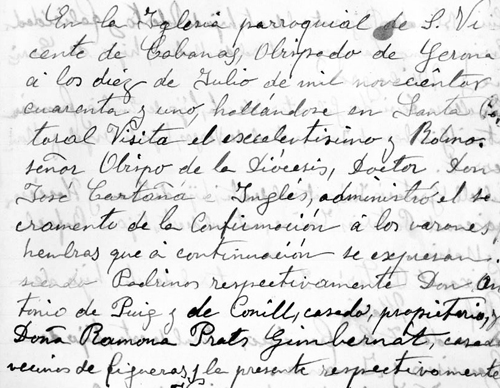 En la Iglesia parroquial de S. Vi
cente de Cabanas, Obispado de Gerona
á los diez de Julio de mil novecientos
cuarenta y uno hallandose en Santa Pas
toral Visita el excelentisimo y Rdmo.
señor Obispo de la Diócesis, Doctor Don
José Cartañá é Inglés, administró el sa
cramento de la Confirmación á los varones
hembras que á continuación se expresan.
siendo Padrinos respectivamente Don An
tonio de Puig y de Conill, casado, propietario, y
Doña Ramona Prats Gimbernat, casada
vecinos de Figueras, y la presente respectivamente